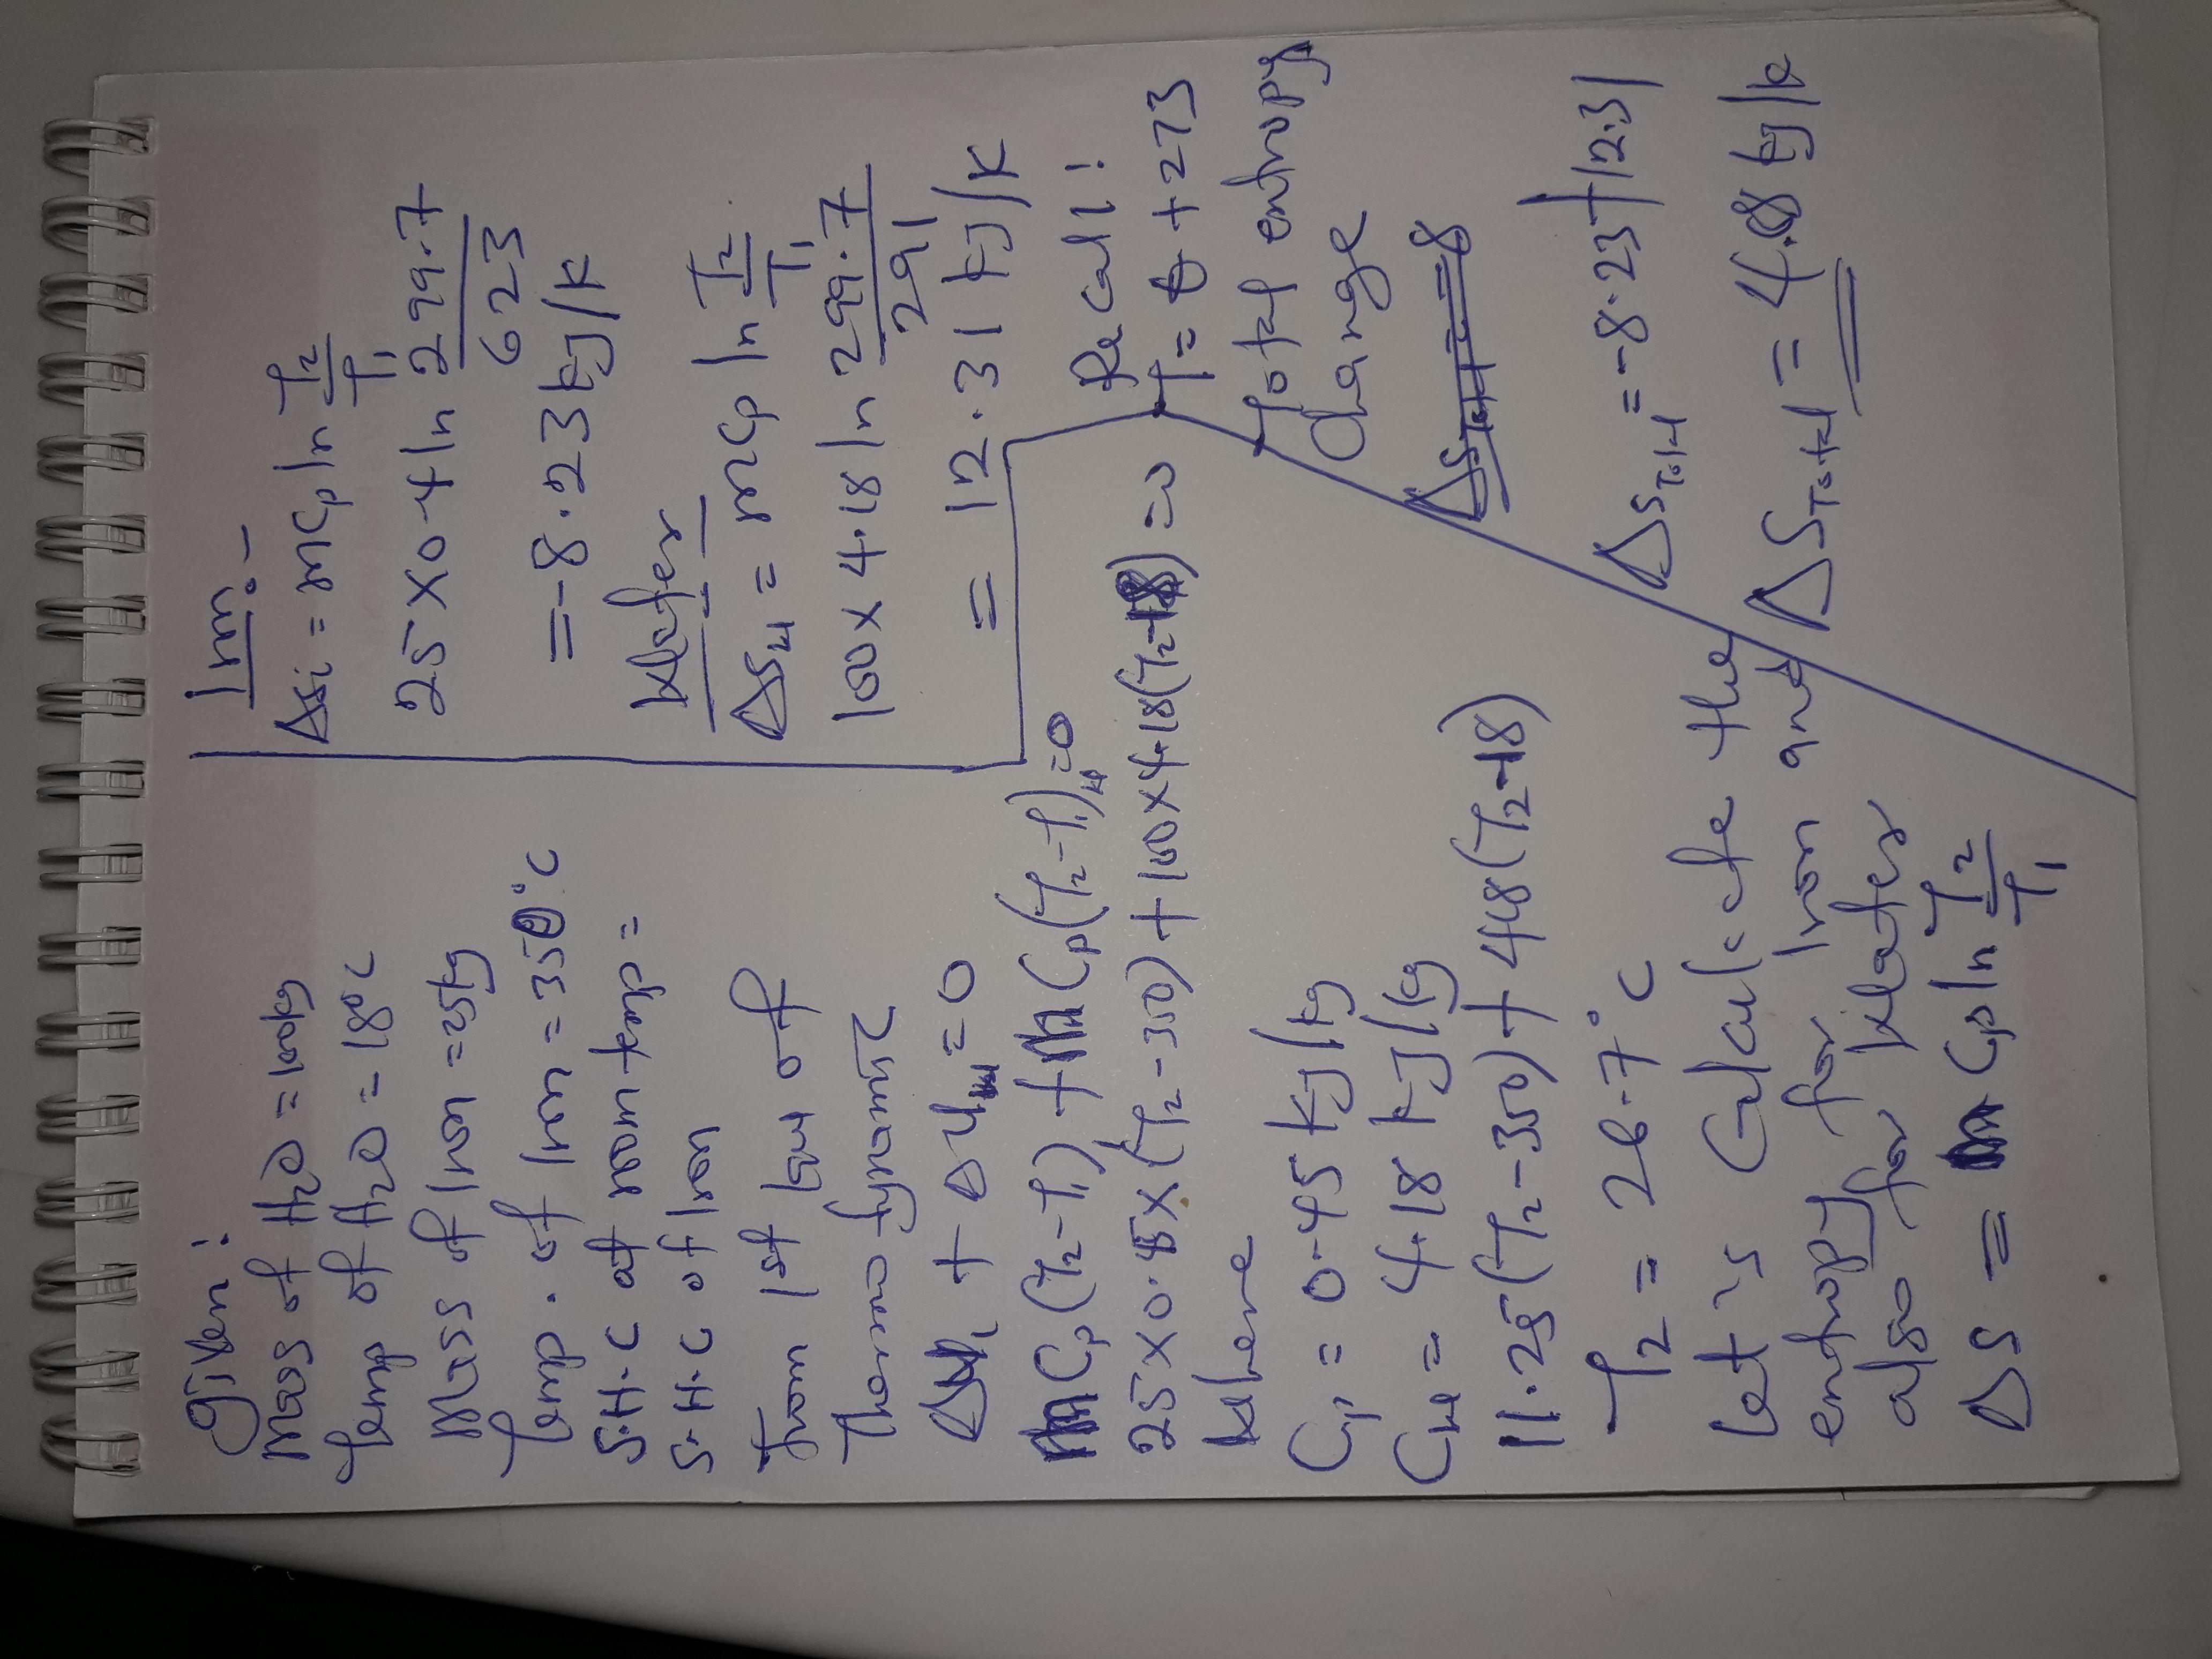 Given:
Mass of H₂O = 100kg
Temp of H₂O = 18°C
Mass of Iron = 25kg
Temp. of Iron = 350°C
S.H.C at room temp =
S.H.C of Iron
From 1st law of
Thermodynamic
+ ΔU = 0
mCp(T₂-T₁) + mCp(T₂-T₁)w = 0
25 x 0.45 x (T₂-350) + 100 x 4.18(T₂-18) = 0
where
= 0.45 kJ/kg
Cw = 4.18 kJ/kg
11.25(T₂-350) + 448(T₂-18)
T₂ = 26.7°C
Let's Calculate the
entropy for Iron and
also for Water
ΔS = m Cp ln T₂/T₁
Iron:-
Δsi = mCp ln T₂/T₁
25 x 0.4 ln 299.7/623
= -8.23 kJ/K
Water
ΔSw = mCp ln T₂/T₁
100 x 4.18 ln 299.7/291
= 12.31 kJ/K
Recall!
T = θ + 273
Total entropy
Change
ΔSTotal = -8
ΔSTotal = -8.23 + 12.31
ΔSTotal = 4.08 kJ/K